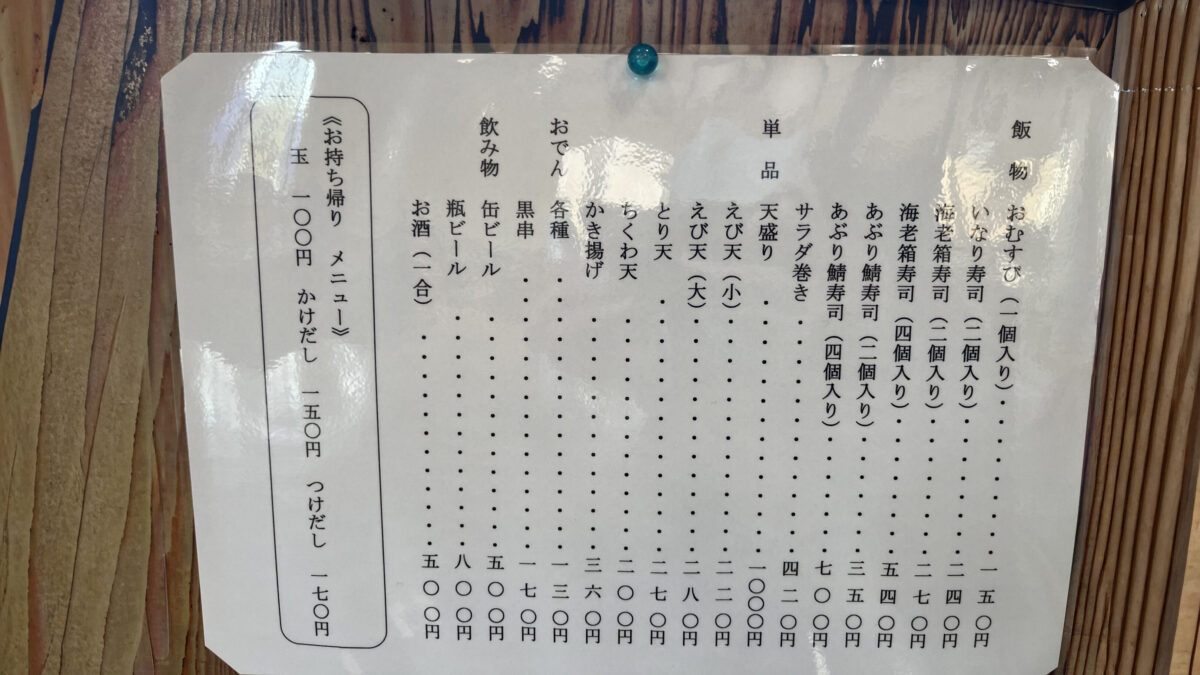 飯物
おむすび（一個入り）・・・・・・・・・一五〇円
いなり寿司（二個入り）・・・・・・・・二四〇円
海老箱寿司（二個入り）・・・・・・・・二七〇円
海老箱寿司（四個入り）・・・・・・・・五四〇円
あぶり鯖寿司（二個入り）・・・・・・・三五〇円
あぶり鯖寿司（四個入り）・・・・・・・七〇〇円
サラダ巻き・・・・・・・・・・・・・四二〇円
単品
天盛り・・・・・・・・・・・・・・一〇〇〇円
えび天（小）・・・・・・・・・・・・・二二〇円
えび天（大）・・・・・・・・・・・・・二八〇円
とり天・・・・・・・・・・・・・・二七〇円
ちくわ天・・・・・・・・・・・・・二〇〇円
かき揚げ・・・・・・・・・・・・・三六〇円
おでん
各種・・・・・・・・・・・・・・・一三〇円
黒串・・・・・・・・・・・・・・・一七〇円
飲み物
缶ビール・・・・・・・・・・・・・五〇〇円
瓶ビール・・・・・・・・・・・・・八〇〇円
お酒（一合）・・・・・・・・・・・・五〇〇円
《お持ち帰り メニュー》
玉 一〇〇円 かけだし 一五〇円 つけだし 一七〇円